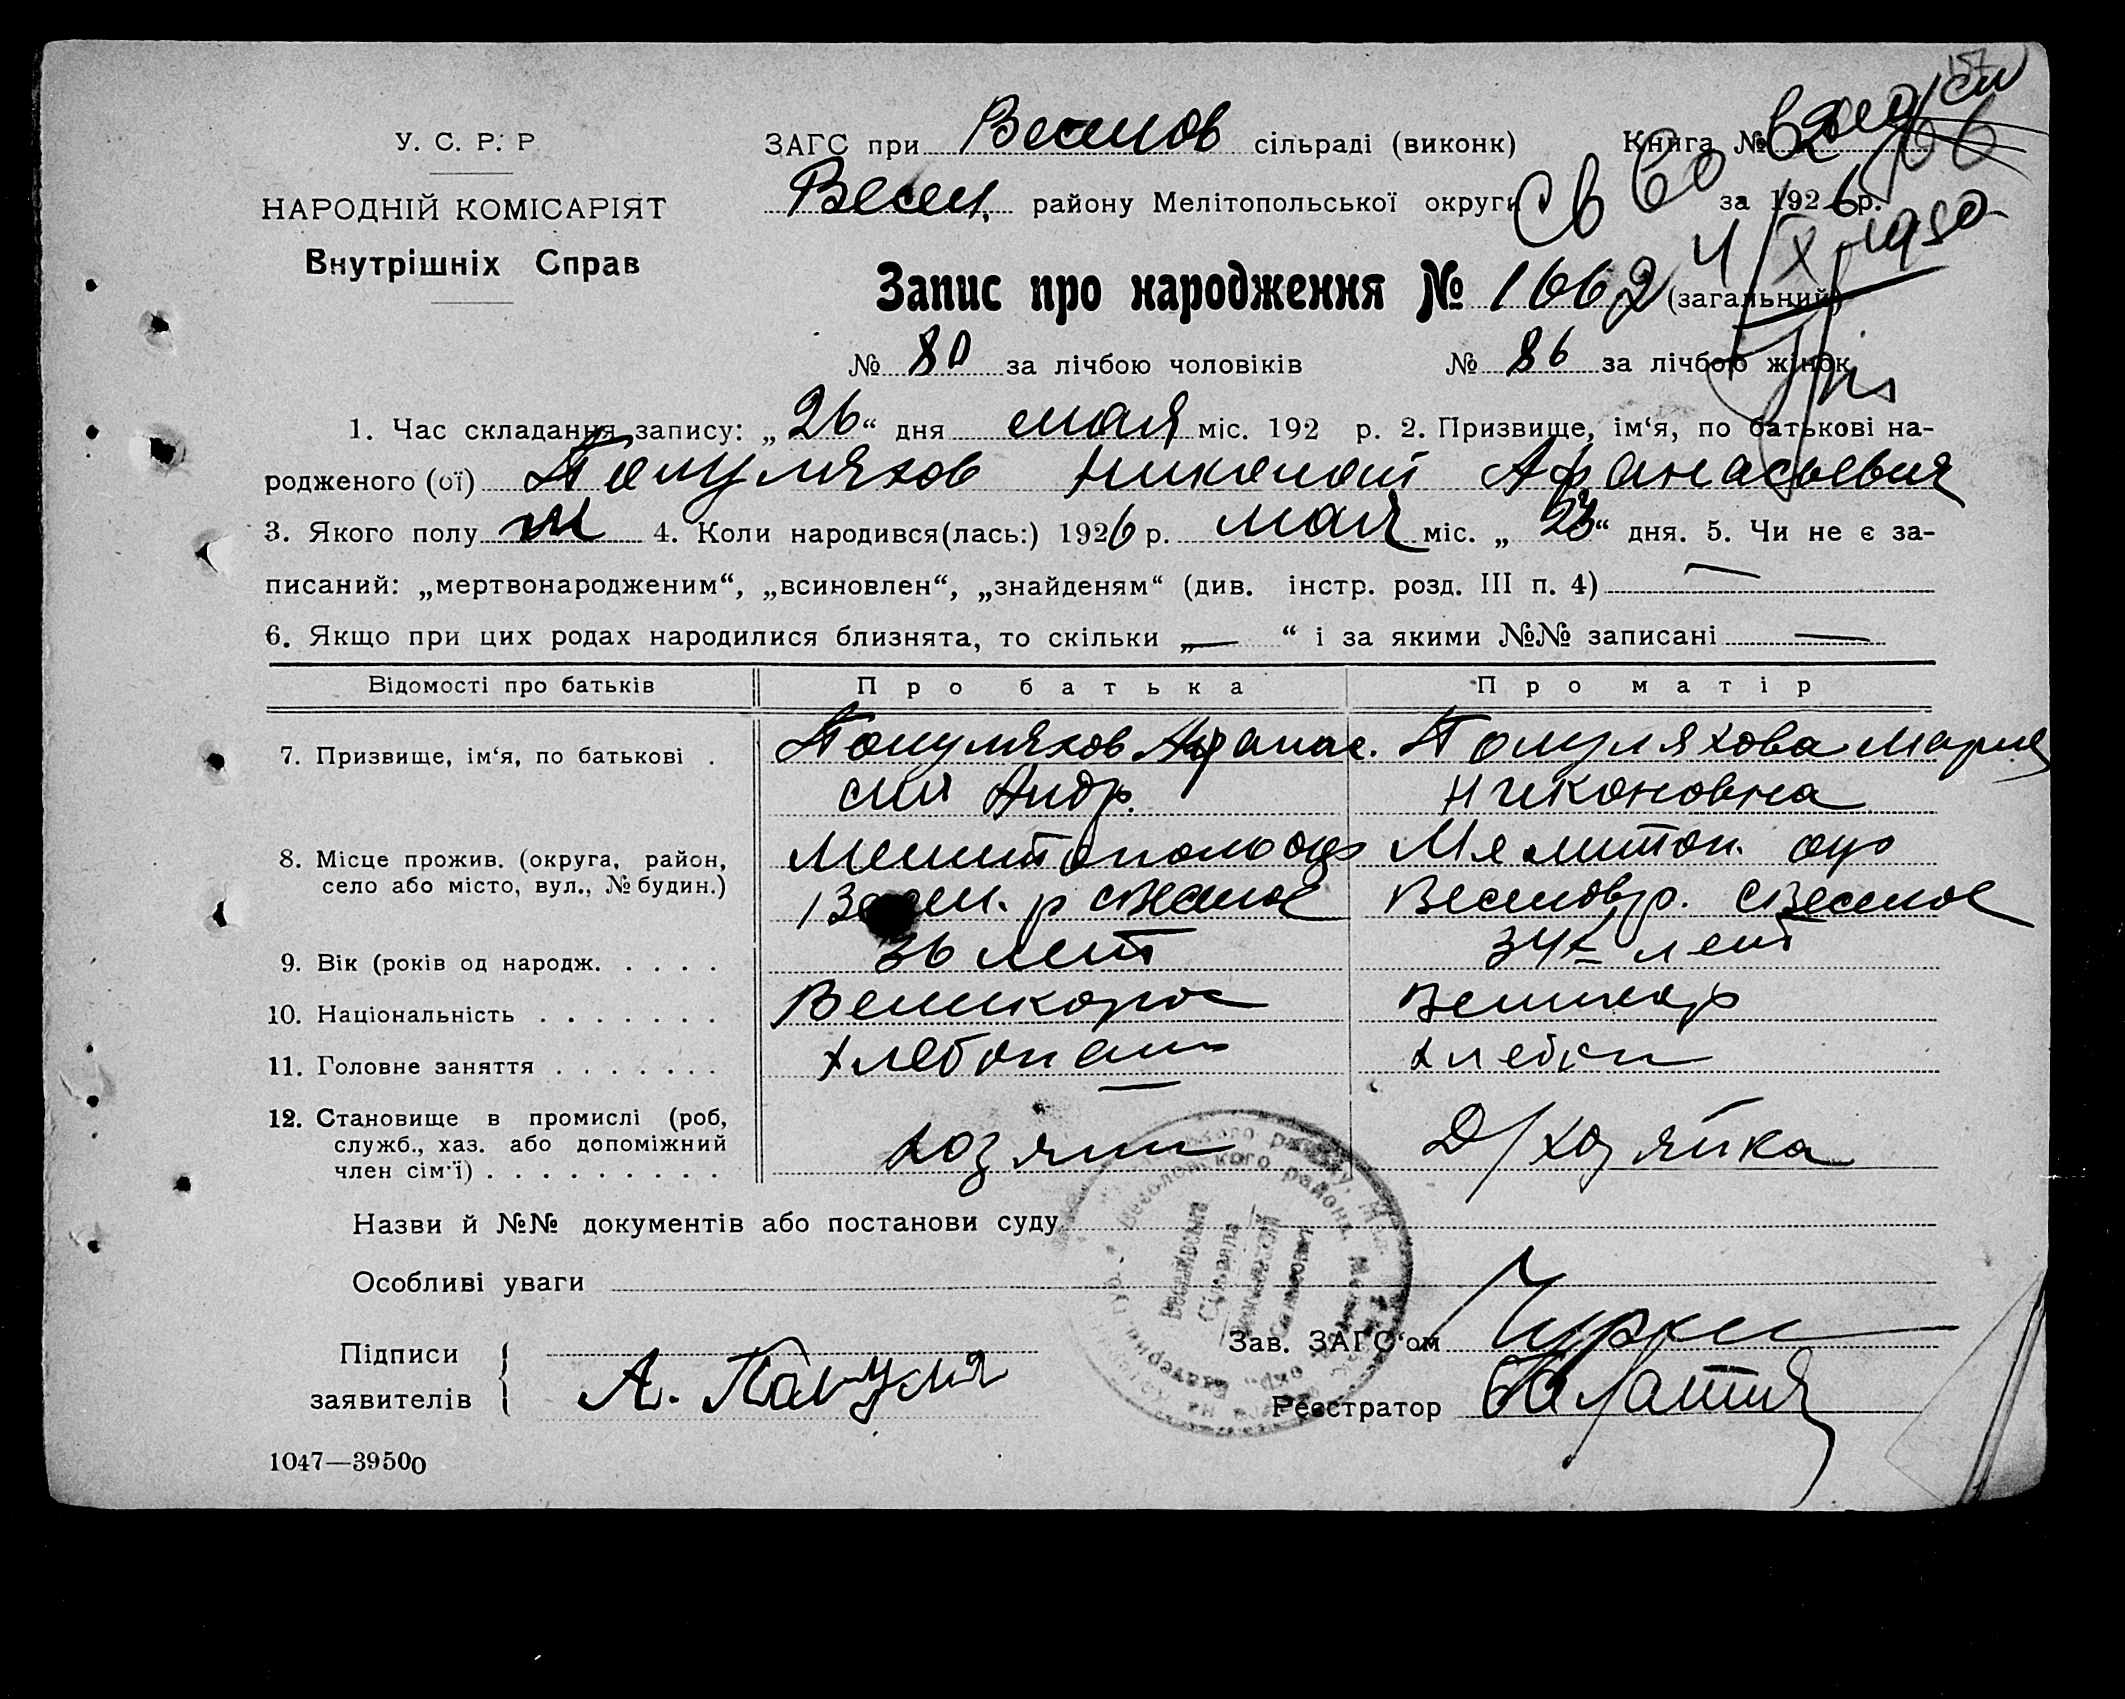 У. С. Р. Р.
НАРОДНІЙ КОМІСАРІЯТ
Внутрішніх Справ
ЗАГС при Веселов сільраді (виконк) Книга №
Весел. району Мелітопольської округи за 1926 р.
Св во выд
4/X 1950
Запис про народження № 166 (загальний)
№ 80 за лічбою чоловіків № 86 за лічбою жінок
1. Час складання запису: „26“ дня мая міс. 192 р. 2. Призвище, ім‘я, по батькові на-
родженого (ої) Полуляхов Николай Афанасьевич
3. Якого полу м 4. Коли народився(лась:) 1926 р. мая міс. „23“ дня. 5. Чи не є за-
писаний: „мертвонародженим“, „всиновлен“, „знайденям“ (див. інстр. розд. III п. 4) —
6. Якщо при цих родах народилися близнята, то скільки „— “ і за якими №№ записані —
Відомості про батьків Про батька Про матір
7. Призвище, ім‘я, по батькові . Полуляхов Афанас. Полуляхова Мария
сий Андр. Никоновна
8. Місце прожив. (округа, район, Мелитополь окр Мелитоп. окр
село або місто, вул., № будин.) Весел. р с Веселое Веселов р. с Веселое
9. Вік (років од народж. . . . . 36 лет 34 лет
10. Національність . . . . . . . Великорос Великор
11. Головне заняття . . . . . . . хлебопаш хлебоп
12. Становище в промислі (роб,
служб., хаз. або допоміжний хозяин Д/хозяйка
член сім‘ї) . . . . . . . . .
Назви й №№ документів або постанови суду
Особливі уваги
Підписи
заявителів А. Полуля
Зав. ЗАГС‘ом
Реєстратор
1047—39500